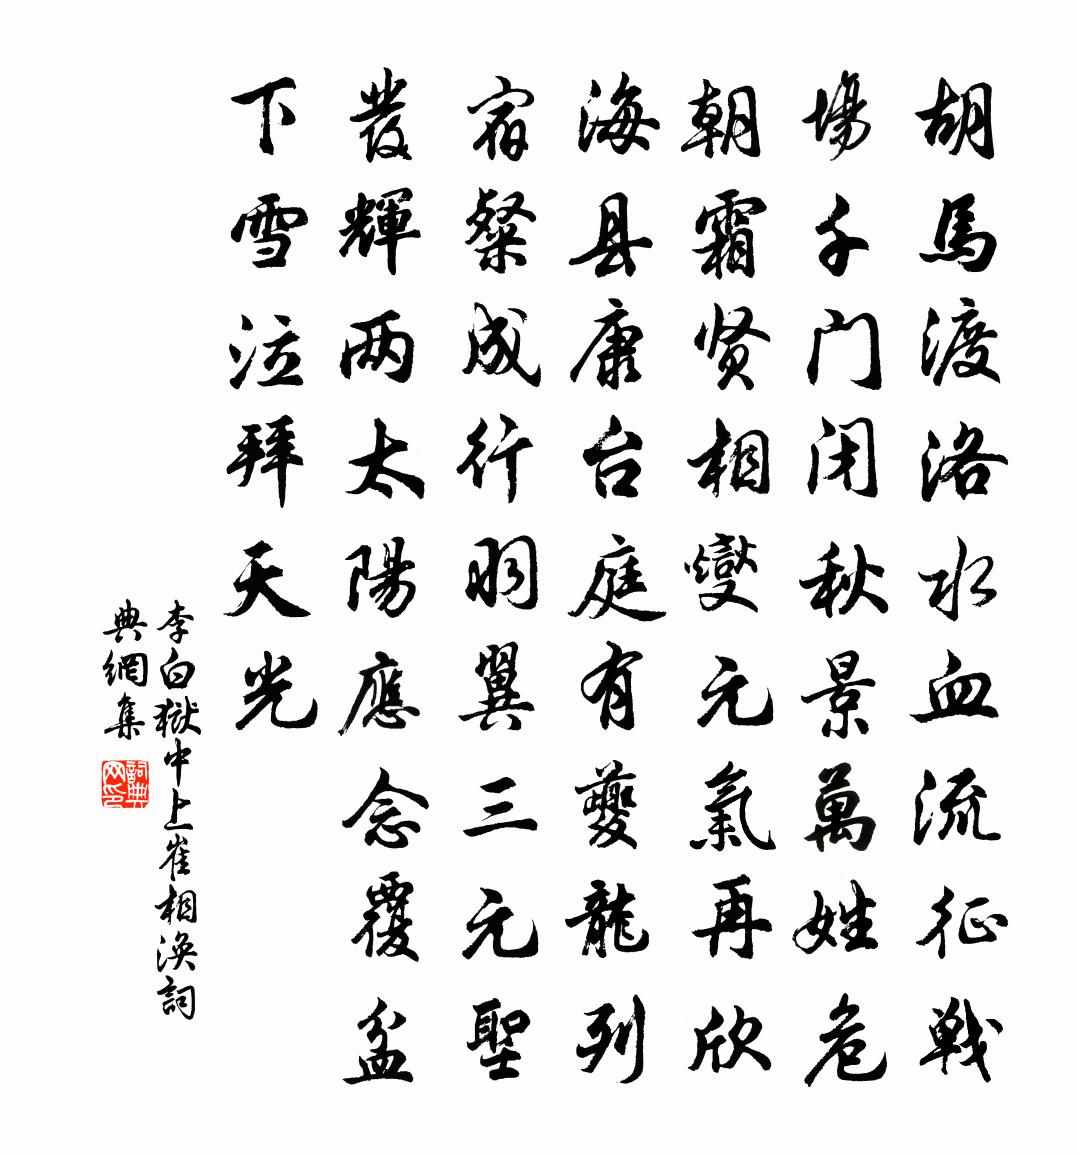 胡馬渡洛水血流征戦
場千门闭秋景萬姓危
朝霜贤相燮元氣再欣
海县康台庭有夔龍列
宿粲成行羽翼三元聖
發輝两太陽應念覆盆
下雪泣拜天光
李白獄中上崔相涣詞
典網集
詞典
网印